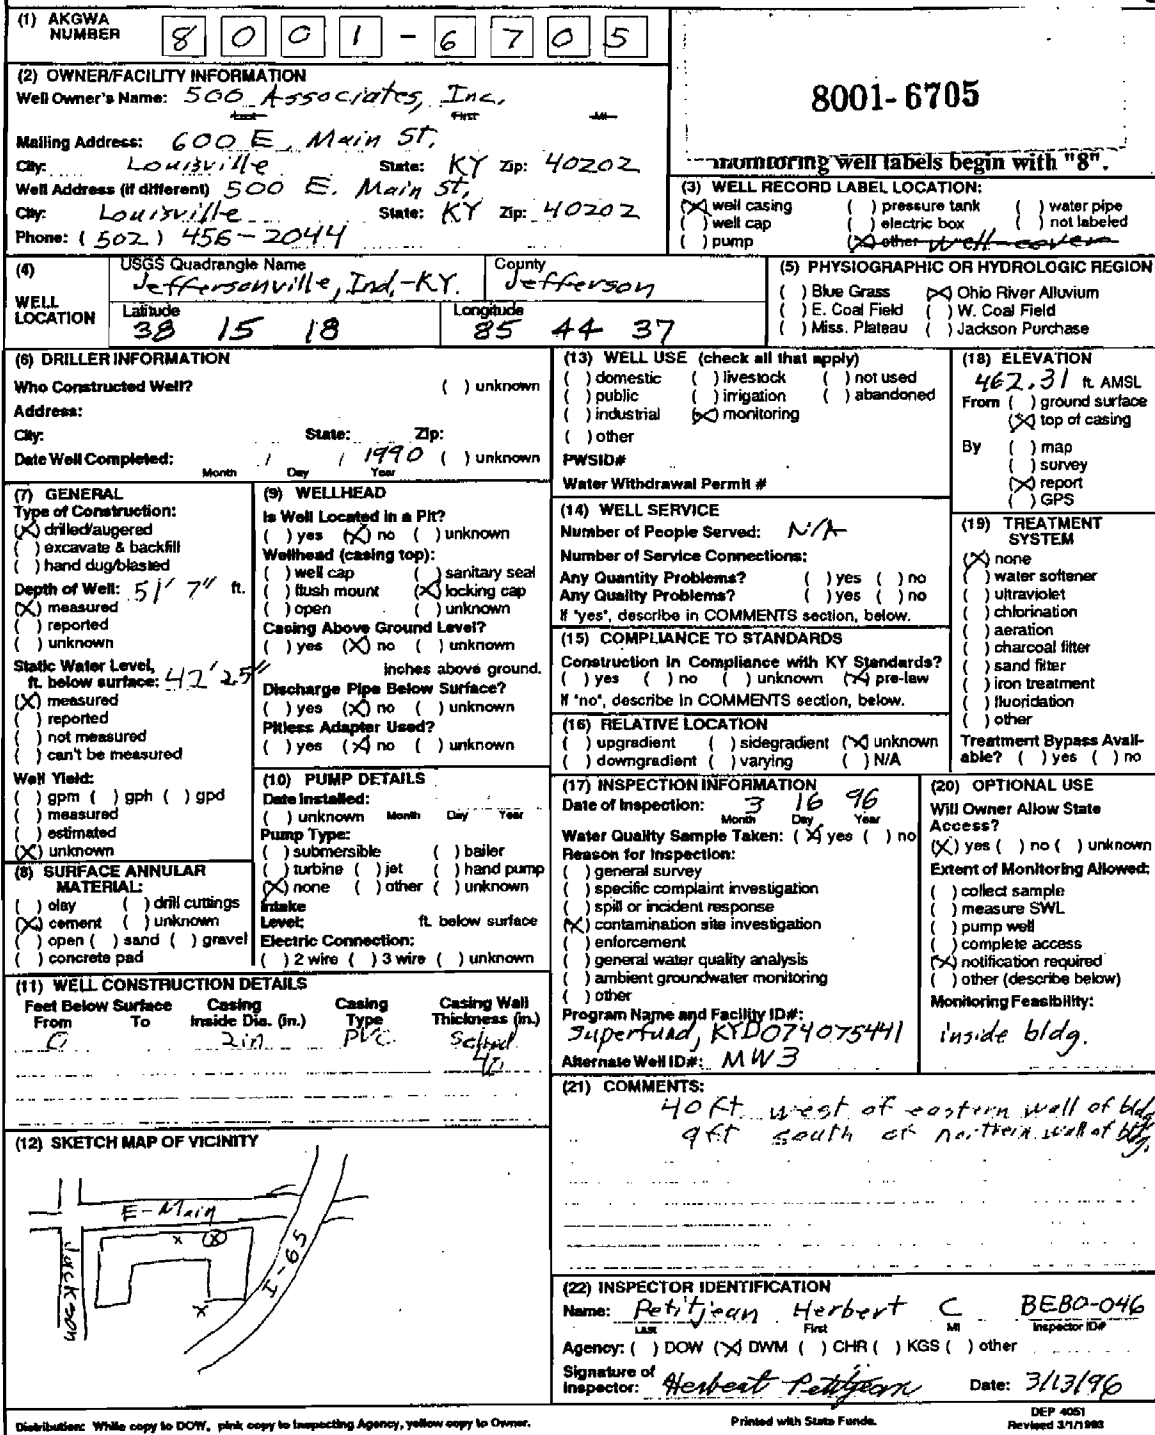 (1) AKGWA NUMBER 8 0 0 1 - 6 7 0 5
8001-6705
monitoring well labels begin with "8".
(2) OWNER/FACILITY INFORMATION
Well Owner's Name: 500 Associates, Inc.
Last First MI
Mailing Address: 600 E. Main St.
City: Louisville State: KY Zip: 40202
Well Address (if different) 500 E. Main St,
City: Louisville State: KY Zip: 40202
Phone: (502) 456-2044
(3) WELL RECORD LABEL LOCATION:
(X) well casing ( ) pressure tank ( ) water pipe
( ) well cap ( ) electric box ( ) not labeled
( ) pump (X) other well cover
(4) WELL LOCATION
USGS Quadrangle Name County
Jeffersonville, Ind,-KY. Jefferson
Latitude Longitude
38 15 18 85 44 37
(5) PHYSIOGRAPHIC OR HYDROLOGIC REGION
( ) Blue Grass (X) Ohio River Alluvium
( ) E. Coal Field ( ) W. Coal Field
( ) Miss. Plateau ( ) Jackson Purchase
(6) DRILLER INFORMATION
Who Constructed Well? ( ) unknown
Address:
City: State: Zip:
Date Well Completed: / / 1990 ( ) unknown
Month Day Year
(7) GENERAL
Type of Construction:
(X) drilled/augered
( ) excavate & backfill
( ) hand dug/blasted
Depth of Well: 51' 7" ft.
(X) measured
( ) reported
( ) unknown
Static Water Level,
ft. below surface: 42' 2.5"
(X) measured
( ) reported
( ) not measured
( ) can't be measured
Well Yield:
( ) gpm ( ) gph ( ) gpd
( ) measured
( ) estimated
(X) unknown
(8) SURFACE ANNULAR MATERIAL:
( ) clay ( ) drill cuttings
(X) cement ( ) unknown
( ) open ( ) sand ( ) gravel
( ) concrete pad
(9) WELLHEAD
Is Well Located in a Pit?
( ) yes (X) no ( ) unknown
Wellhead (casing top):
( ) well cap ( ) sanitary seal
( ) flush mount (X) locking cap
( ) open ( ) unknown
Casing Above Ground Level?
( ) yes (X) no ( ) unknown
inches above ground.
Discharge Pipe Below Surface?
( ) yes (X) no ( ) unknown
Pitless Adapter Used?
( ) yes (X) no ( ) unknown
(10) PUMP DETAILS
Date Installed:
( ) unknown Month Day Year
Pump Type:
( ) submersible ( ) bailer
( ) turbine ( ) jet ( ) hand pump
(X) none ( ) other ( ) unknown
Intake
Level: ft. below surface
Electric Connection:
( ) 2 wire ( ) 3 wire ( ) unknown
(11) WELL CONSTRUCTION DETAILS
Feet Below Surface Casing Casing Casing Wall
From To Inside Dia. (in.) Type Thickness (in.)
0 2in PVC Sched
40
(12) SKETCH MAP OF VICINITY
E-Main
Jackson
I-65
x (x)
x
(13) WELL USE (check all that apply)
( ) domestic ( ) livestock ( ) not used
( ) public ( ) irrigation ( ) abandoned
( ) industrial (X) monitoring
( ) other
PWSID#
Water Withdrawal Permit #
(14) WELL SERVICE
Number of People Served: N/A
Number of Service Connections:
Any Quantity Problems? ( ) yes ( ) no
Any Quality Problems? ( ) yes ( ) no
If "yes", describe in COMMENTS section, below.
(15) COMPLIANCE TO STANDARDS
Construction in Compliance with KY Standards?
( ) yes ( ) no ( ) unknown (X) pre-law
If "no", describe in COMMENTS section, below.
(16) RELATIVE LOCATION
( ) upgradient ( ) sidegradient (X) unknown
( ) downgradient ( ) varying ( ) N/A
(17) INSPECTION INFORMATION
Date of Inspection: 3 16 96
Month Day Year
Water Quality Sample Taken: (X) yes ( ) no
Reason for Inspection:
( ) general survey
( ) specific complaint investigation
( ) spill or incident response
(X) contamination site investigation
( ) enforcement
( ) general water quality analysis
( ) ambient groundwater monitoring
( ) other
Program Name and Facility ID#:
Superfund, KYD074075441
Alternate Well ID#: MW3
(18) ELEVATION
462.31 ft. AMSL
From ( ) ground surface
(X) top of casing
By ( ) map
( ) survey
(X) report
( ) GPS
(19) TREATMENT SYSTEM
(X) none
( ) water softener
( ) ultraviolet
( ) chlorination
( ) aeration
( ) charcoal filter
( ) sand filter
( ) iron treatment
( ) fluoridation
( ) other
Treatment Bypass Avail-
able? ( ) yes ( ) no
(20) OPTIONAL USE
Will Owner Allow State
Access?
(X) yes ( ) no ( ) unknown
Extent of Monitoring Allowed:
( ) collect sample
( ) measure SWL
( ) pump well
( ) complete access
(X) notification required
( ) other (describe below)
Monitoring Feasibility:
inside bldg.
(21) COMMENTS:
40 ft west of eastern wall of bldg
9 ft south of northern wall of bldg.
(22) INSPECTOR IDENTIFICATION
Name: Petitjean Herbert C BEBO-046
Last First MI Inspector ID#
Agency: ( ) DOW (X) DWM ( ) CHR ( ) KGS ( ) other
Signature of
Inspector: Herbert Petitjean Date: 3/13/96
Distribution: White copy to DOW, pink copy to Inspecting Agency, yellow copy to Owner.
Printed with State Funds.
DEP 4051
Revised 3/1/1993